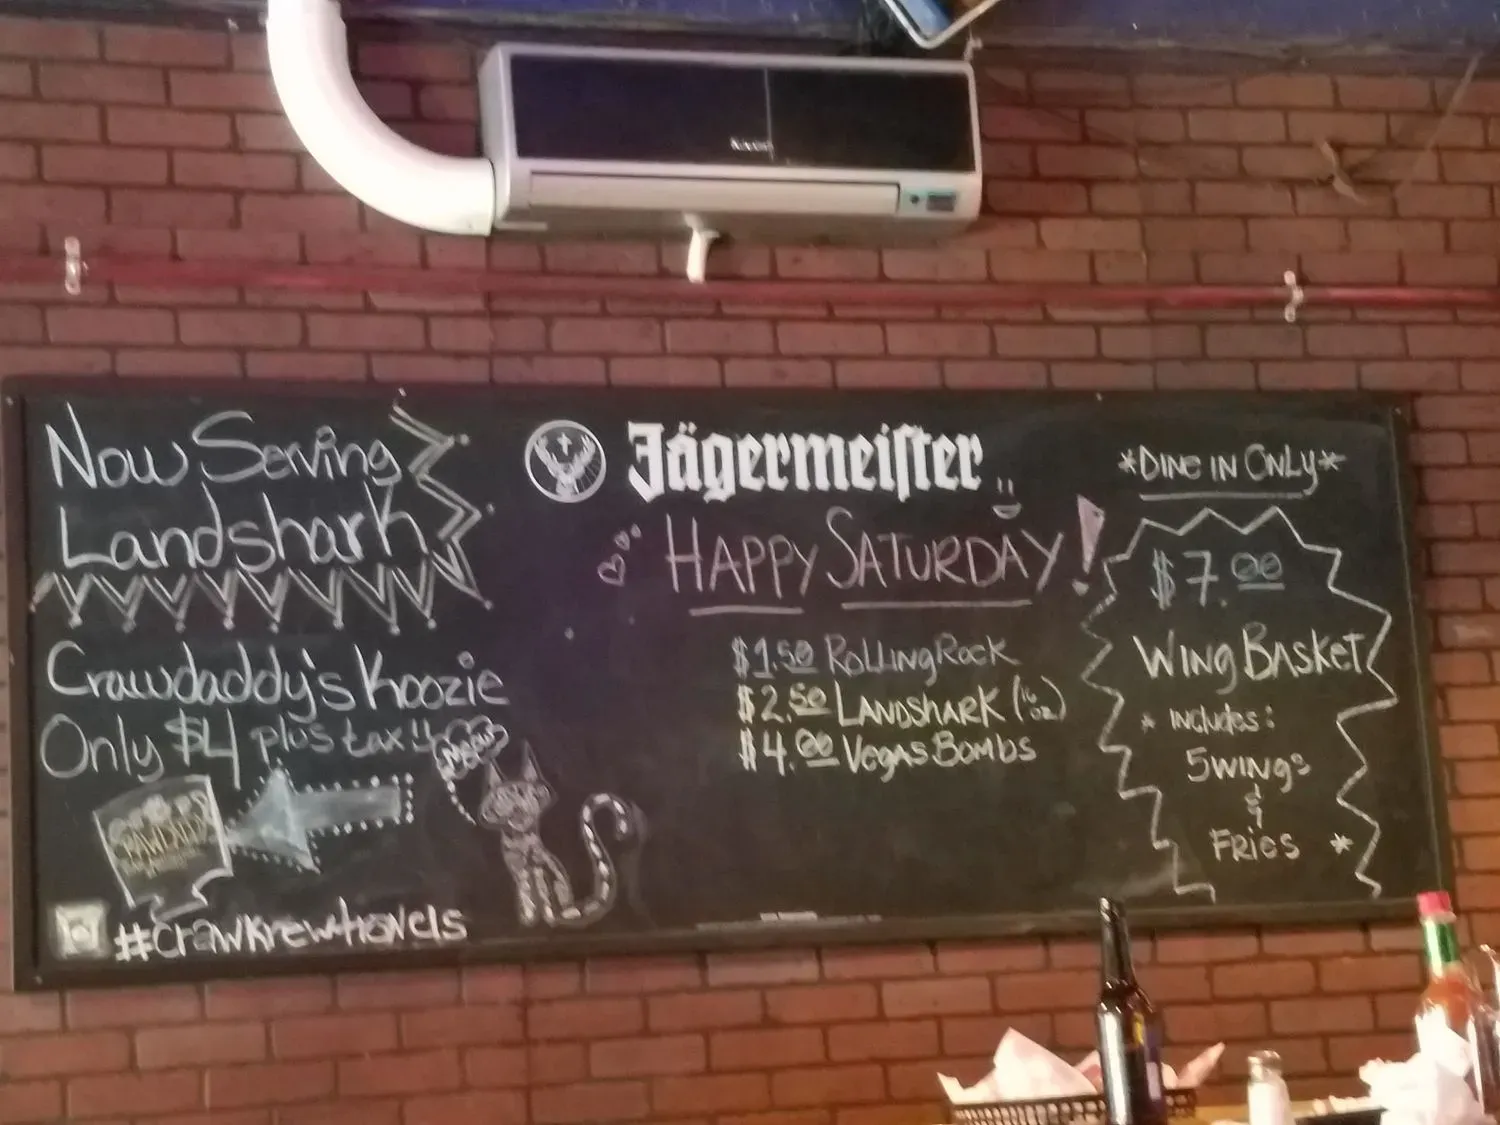 Now Serving
Landshark
Crawdaddy's Koozie
Only $4 plus tax!!
Meow
#crawkrewtravels
Jägermeiſter
HAPPY SATURDAY!
$1.50 ROLLING ROCK
$2.50 LANDSHARK (16 oz)
$4.00 VEGAS BOMBS
*DINE IN ONLY*
$7.00
WING BASKET
* INCLUDES:
5 WINGS
&
FRIES *